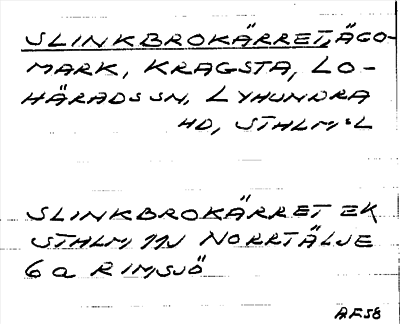 SLINKBROKÄRRET, ÄGO-
MARK, KRAGSTA, LO-
HÄRADS SN, LYHUNDRA
HD, STHLMS L
SLINKBROKÄRRET EK
STHLM 11J NORRTÄLJE
6a RIMSJÖ
AF58